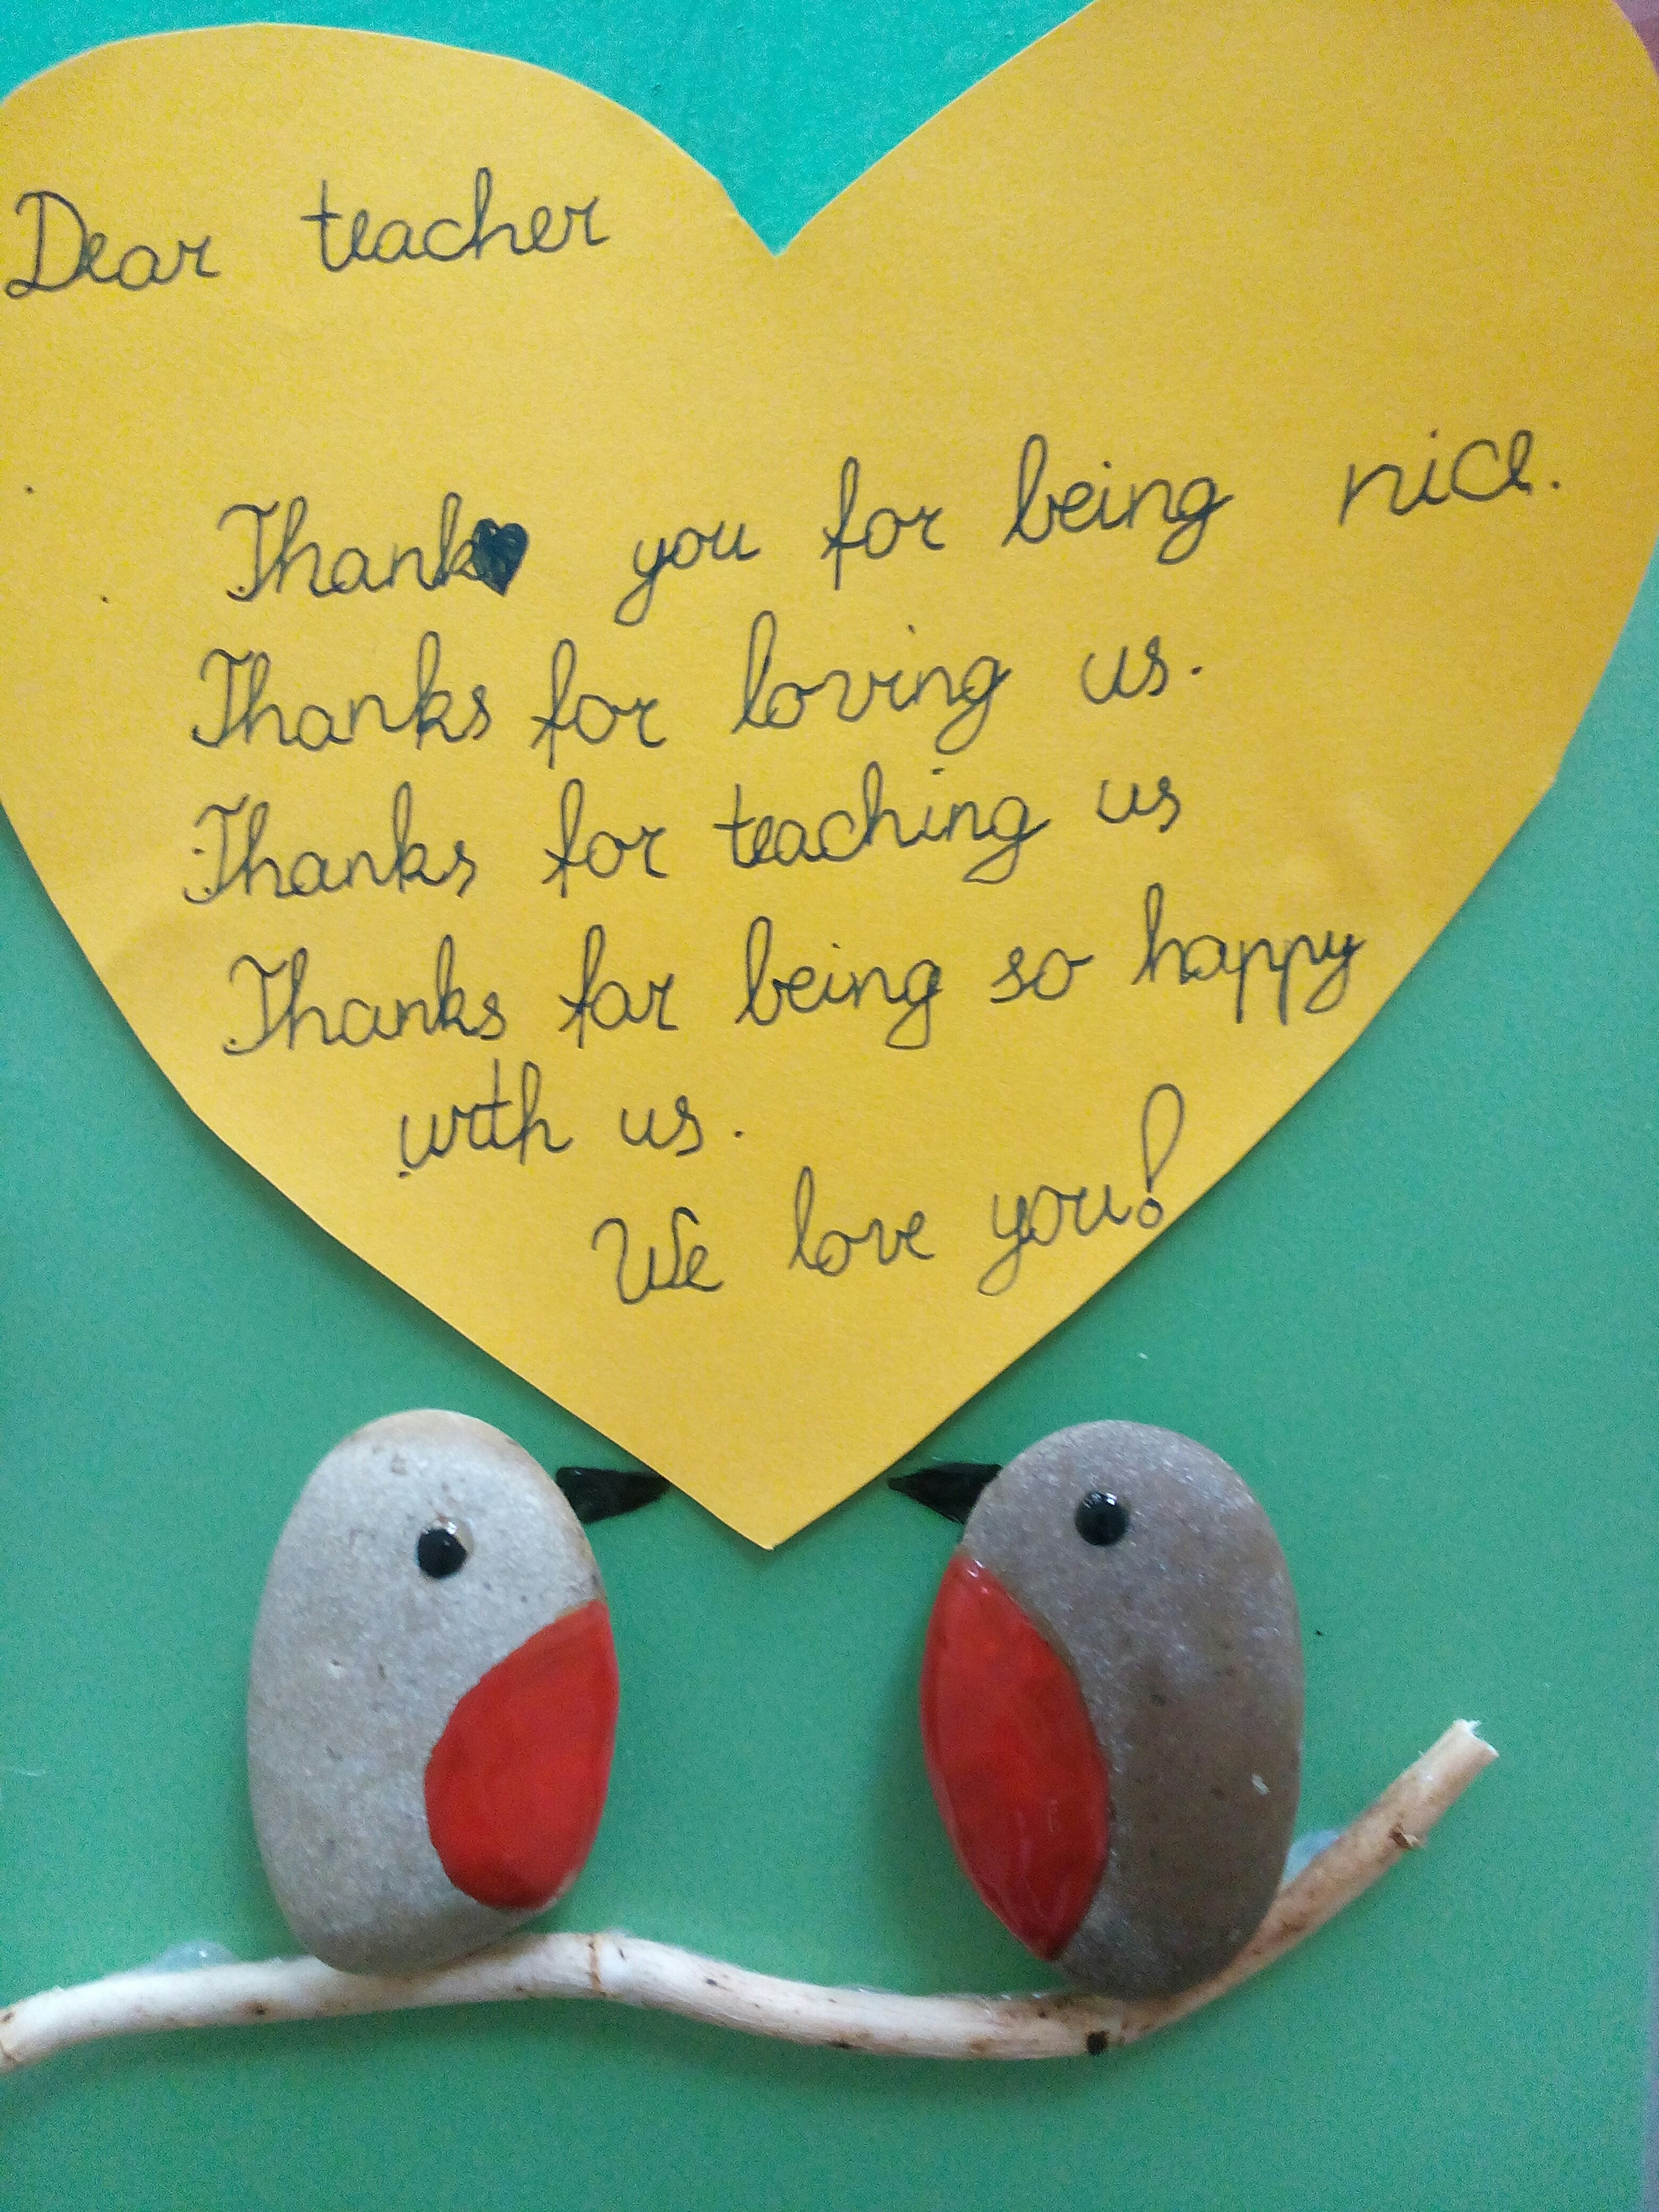 Dear teacher
Thank♥ you for being nice.
Thanks for loving us.
Thanks for teaching us
Thanks for being so happy
with us.
We love you!